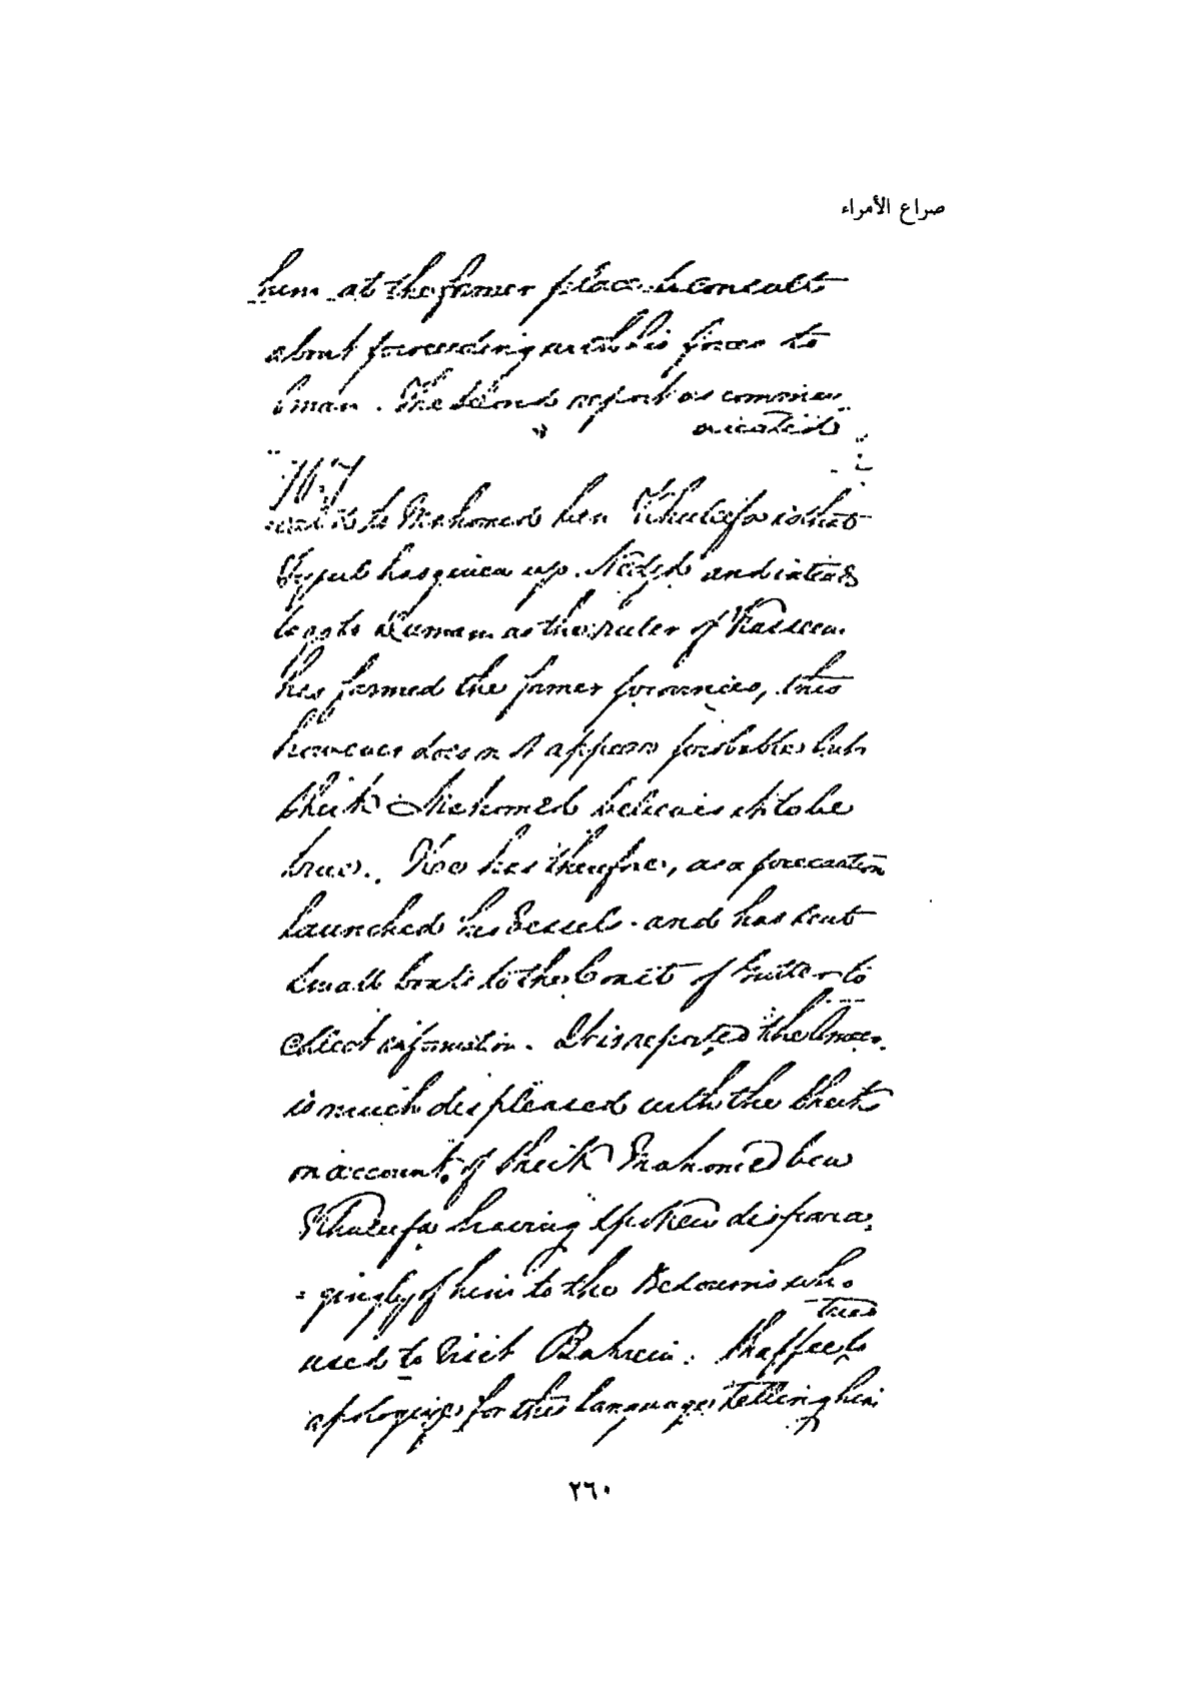 صراع الأمراء
him at the former place to consult
about proceeding with his forces to
Oman. The second report as commu
nicated
767
to Mahomed ben Khuleefa is that
Fysul has given up Nedjd and
to as the ruler of Kasseem
has farmed the former provinces, this
however does not appear probable but
Sheik Mahomed believes it to be
true. He has therefore, as a precaution
launched his Vessels and has sent
small boats to the Coast of Gutter to
elicit information. It is reported the Ameer
is much displeased with the Sheik
on account of Sheik Mahomed ben
Khuleefa having spoken dispara
gingly of him to the Bedouins who
used to visit Bahrein.
apologize for this language telling him
٢٦٠